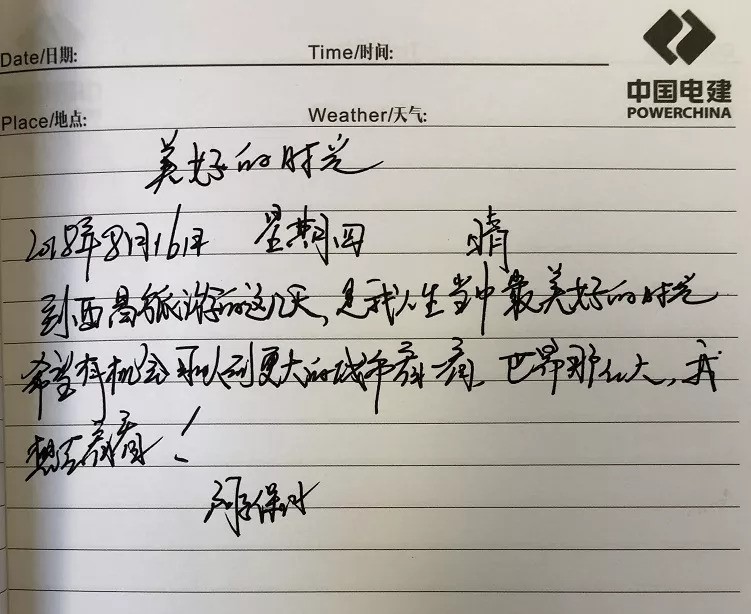 Date/日期:
Time/时间:
中国电建
POWERCHINA
Place/地点:
Weather/天气:
美好的时光
2018年8月16日 星期四 晴
到西昌旅游的这几天,是我人生当中最美好的时光
希望有机会可以到更大的城市看看,世界那么大,我
想去看看!